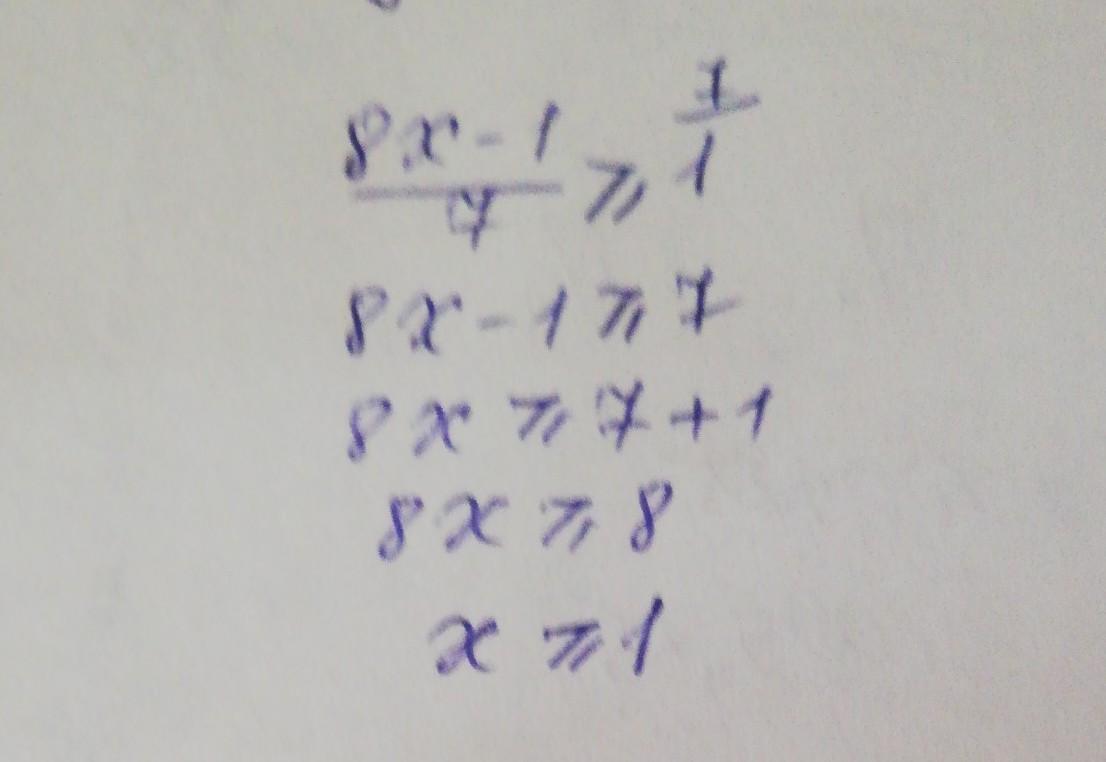 (8x-1)/7 ⩾ 7/1
8x-1⩾7
8x⩾7+1
8x⩾8
x⩾1